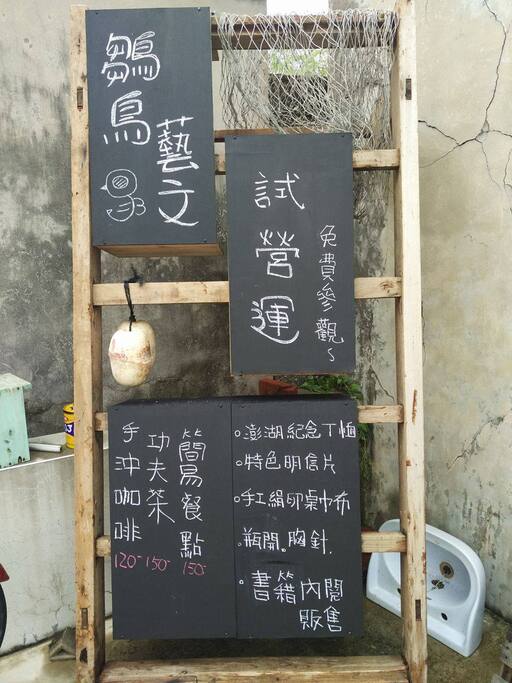 雛鳥
藝文
試營運
免費參觀~
手沖咖啡
120-
功夫茶
150-
簡易餐點
150-
。澎湖紀念T恤
。特色明信片
。手工絹印桌巾布
。瓶開。胸針.
。書籍內閱
販售